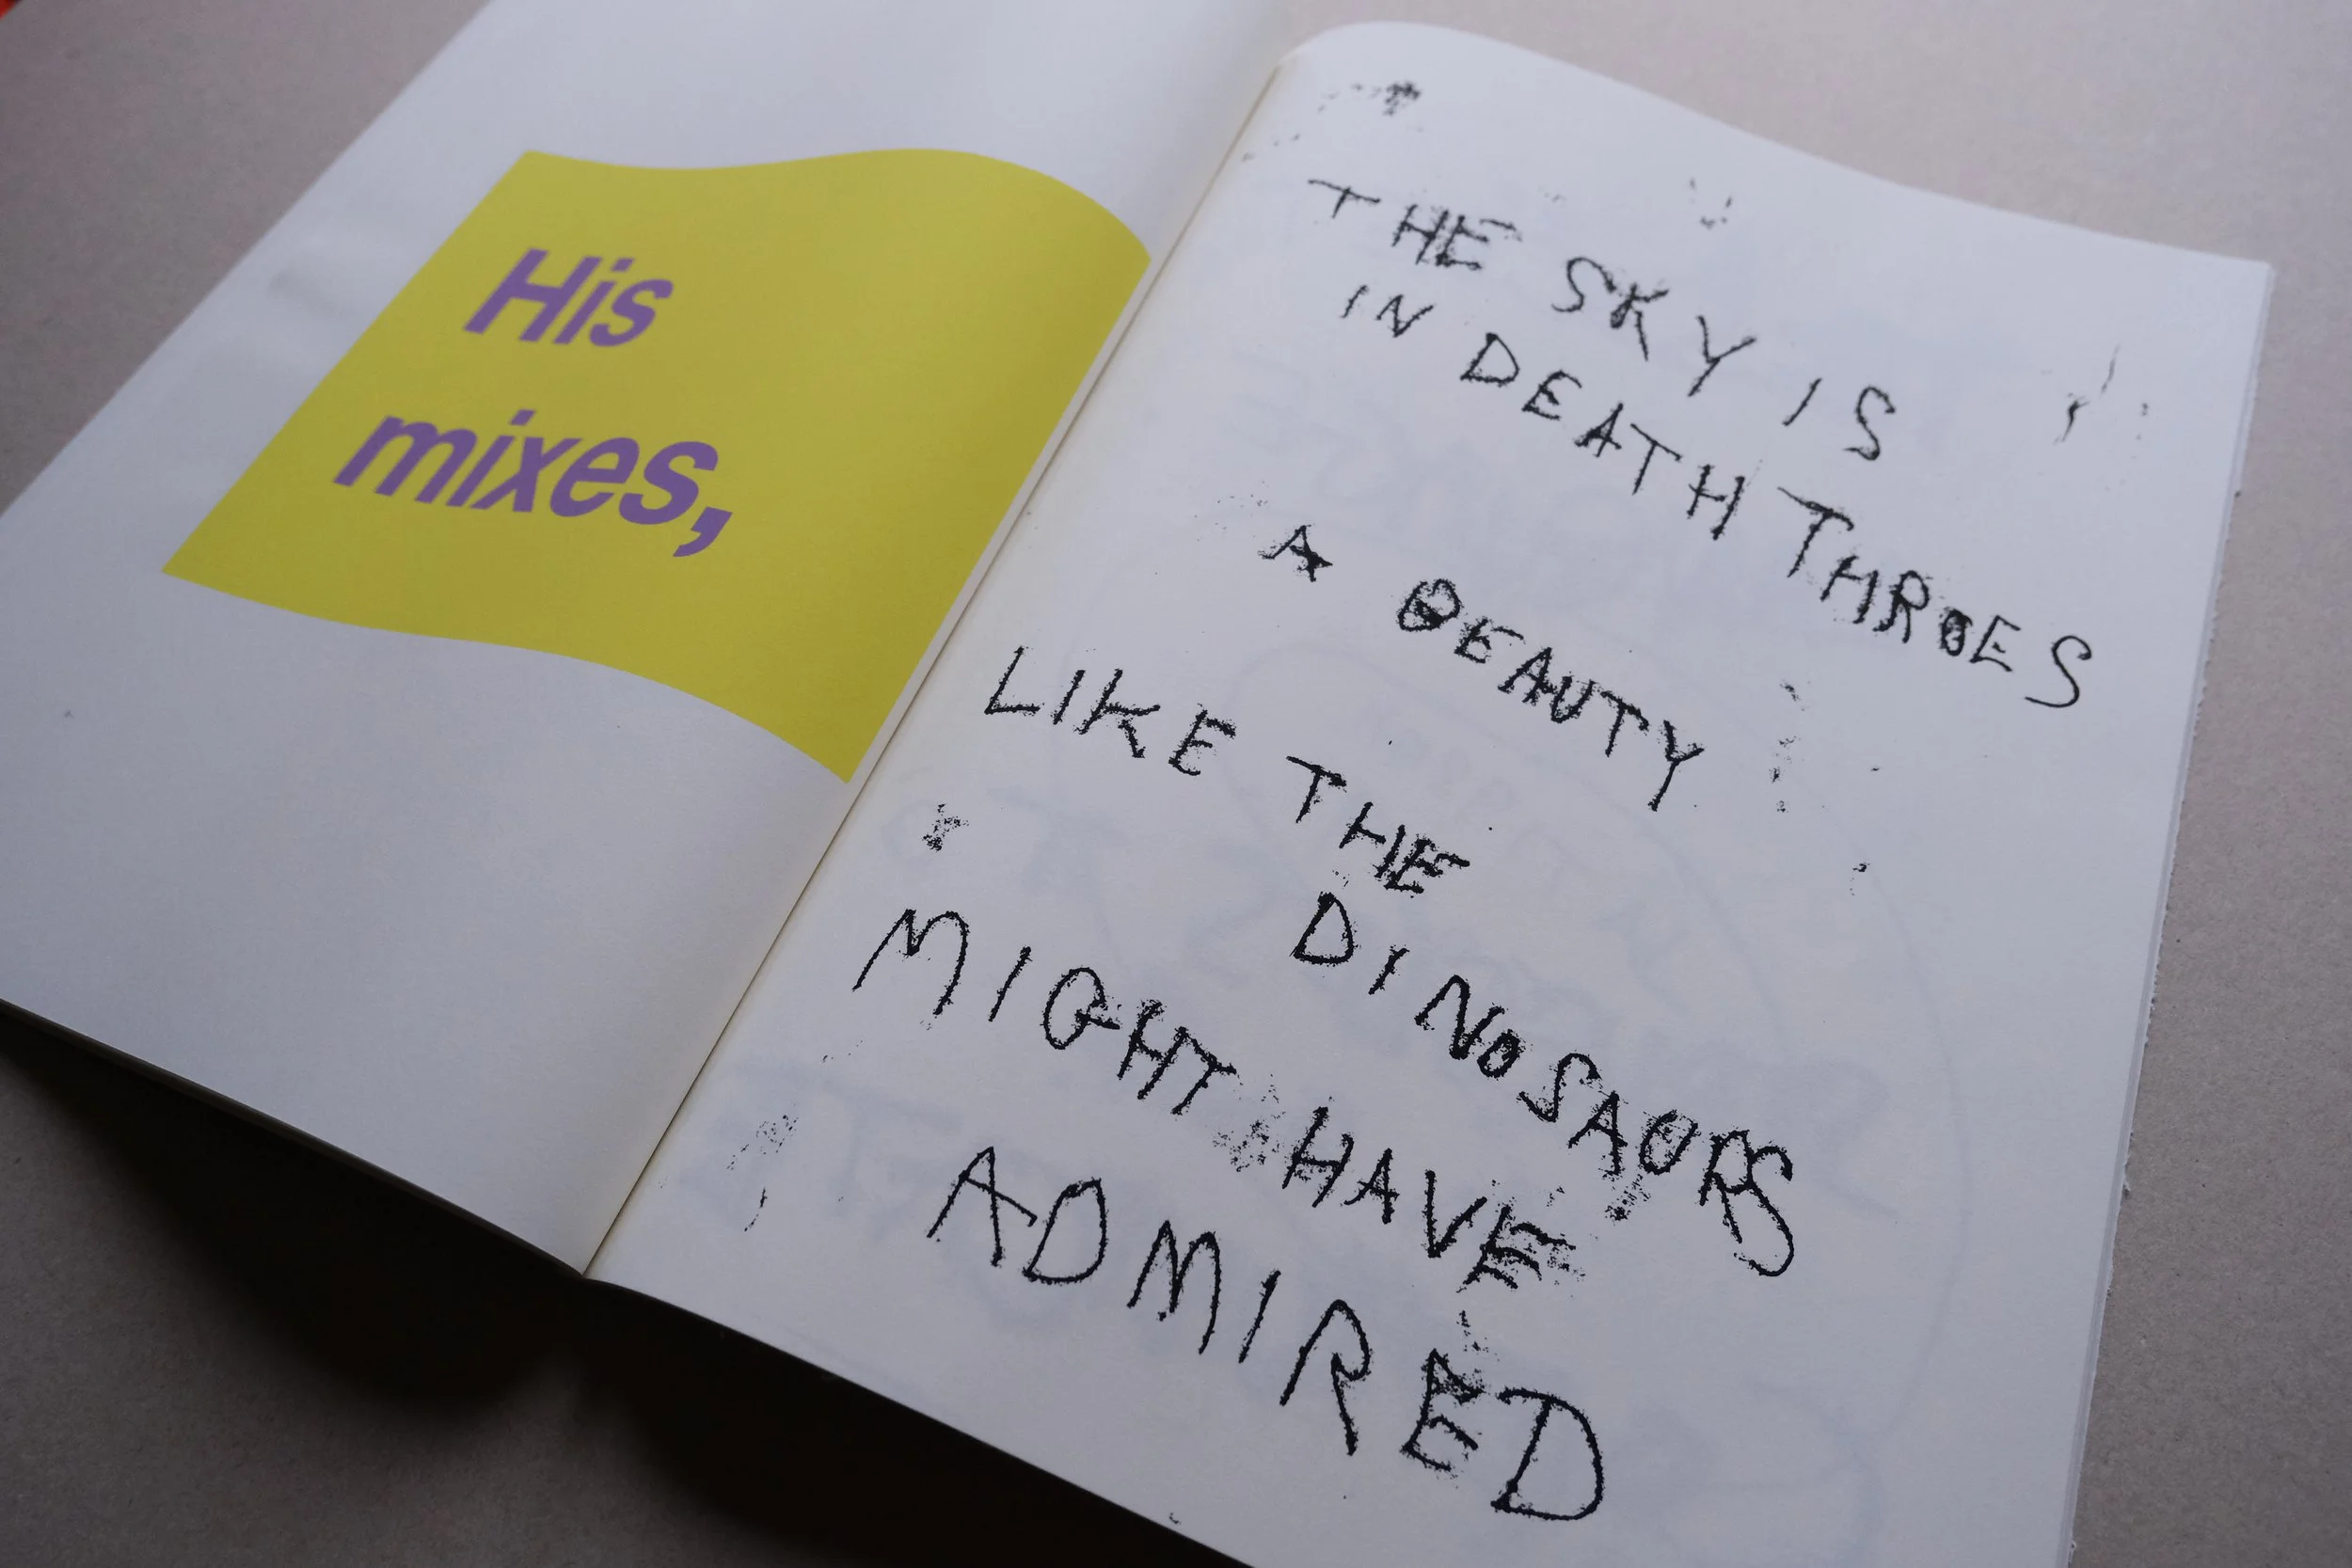 His
mixes,
THE SKY IS
IN DEATH THROES
A BEAUTY
LIKE THE
DINOSAURS
MIGHT HAVE
ADMIRED